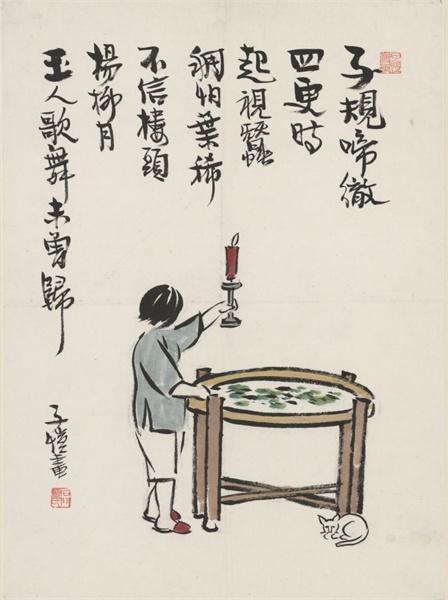 子規啼徹
四更時
起視蠶
稠怕葉稀
不信樓頭
楊柳月
玉人歌舞未曾歸
子愷畫